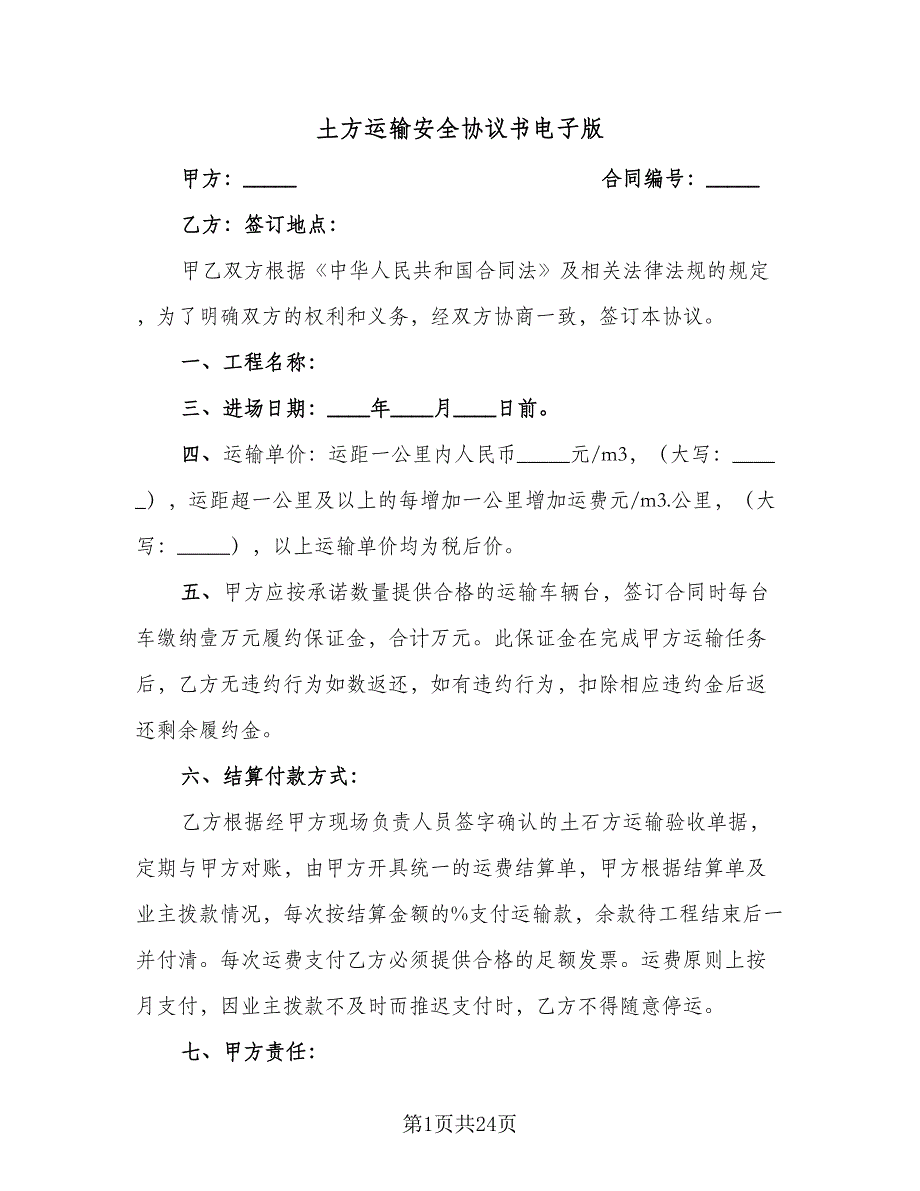 土方运输安全协议书电子版
甲方：_____ 合同编号：_____
乙方：签订地点：
甲乙双方根据《中华人民共和国合同法》及相关法律法规的规定
，为了明确双方的权利和义务，经双方协商一致，签订本协议。
一、工程名称：
三、进场日期：____年____月____日前。
四、运输单价：运距一公里内人民币_____元/m3，（大写：____
_），运距超一公里及以上的每增加一公里增加运费元/m3.公里，（大
写：_____），以上运输单价均为税后价。
五、甲方应按承诺数量提供合格的运输车辆台，签订合同时每台
车缴纳壹万元履约保证金，合计万元。此保证金在完成甲方运输任务
后，乙方无违约行为如数返还，如有违约行为，扣除相应违约金后返
还剩余履约金。
六、结算付款方式：
乙方根据经甲方现场负责人员签字确认的土石方运输验收单据，
定期与甲方对账，由甲方开具统一的运费结算单，甲方根据结算单及
业主拨款情况，每次按结算金额的%支付运输款，余款待工程结束后一
并付清。每次运费支付乙方必须提供合格的足额发票。运费原则上按
月支付，因业主拨款不及时而推迟支付时，乙方不得随意停运。
七、甲方责任：
第1页共24页